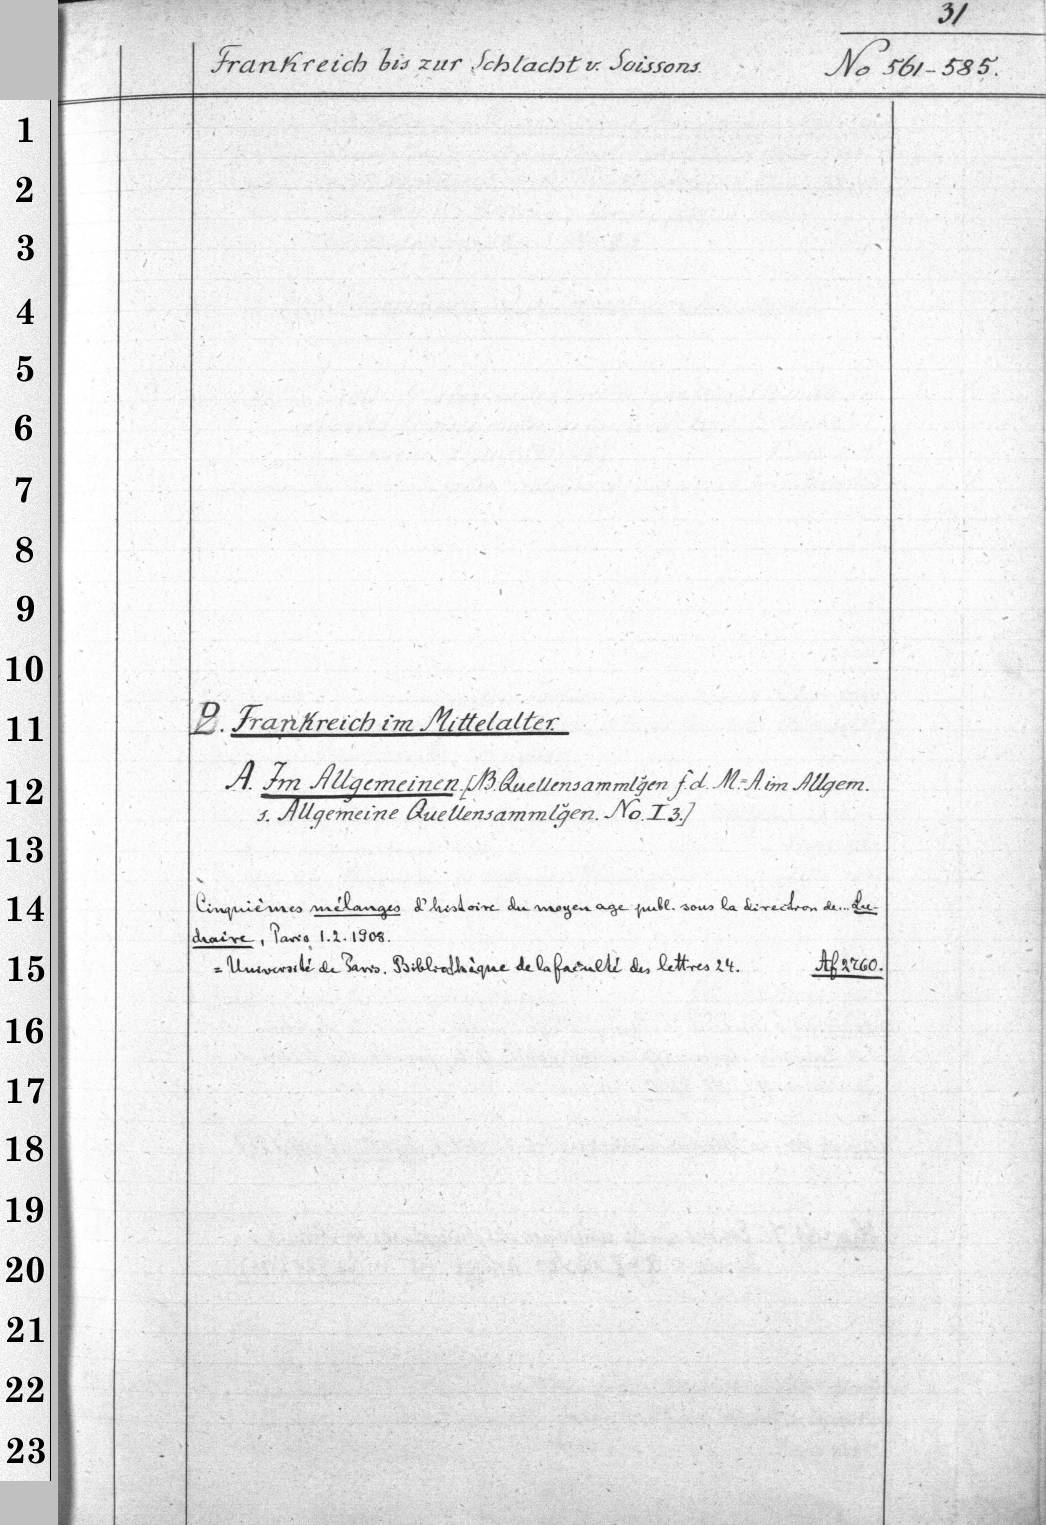 31
Frankreich bis zur Schlacht v. Soissons.
No 561-585.
1
2
3
4
5
6
7
8
9
10
11
12
13
14
15
16
17
18
19
20
21
22
23
Frankreich im Mittelalter.
A. Im Allgemeinen. [NB. Quellensammlg̃en f. d. M.=A. im Allgem.
s. Allgemeine Quellensammlg̃en. No. I 3.]
Cinquièmes mélanges d'histoire du moyen age publ. sous la direction de...
Paris 1.2.1908.
= Université de Paris. Bibliothèque de la faculté des lettres 24.
Af 2760.